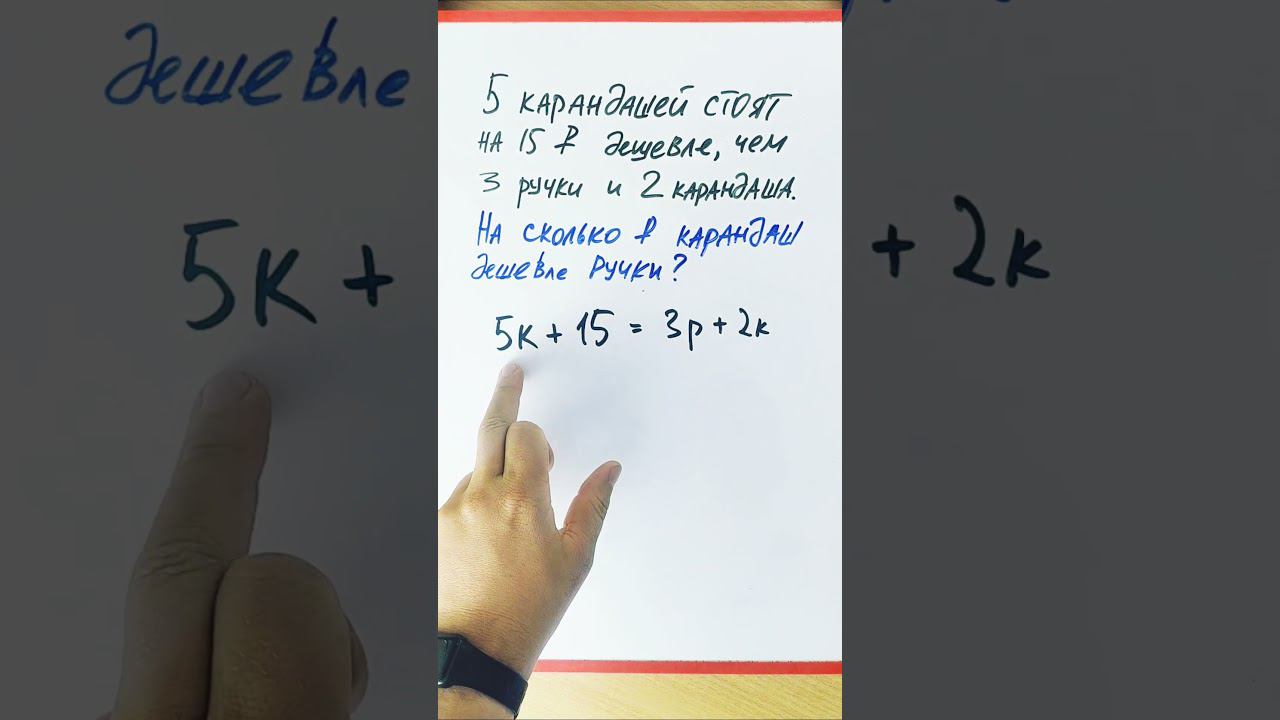 5 карандашей стоят
на 15 ₽ дешевле, чем
3 ручки и 2 карандаша.
На сколько ₽ карандаш
дешевле ручки?
5к + 15 = 3р + 2к
дешевле
5к +
+ 2к